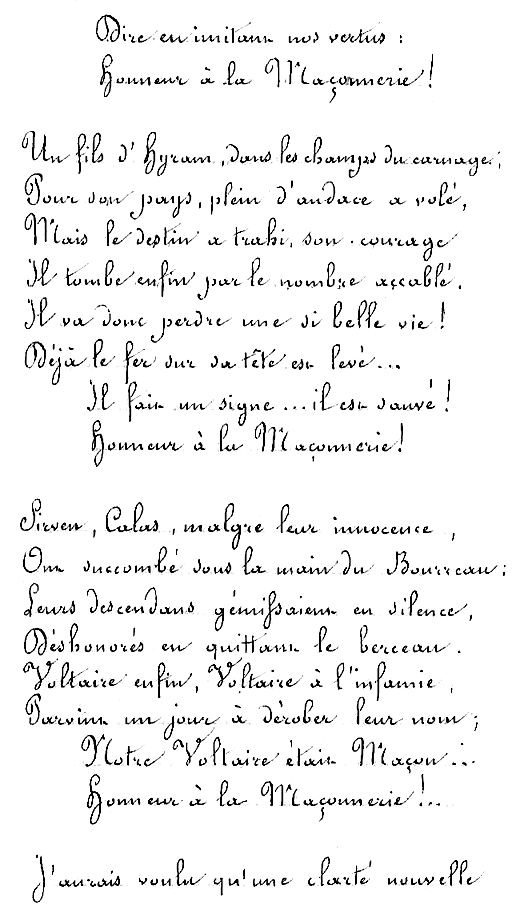 Dire en imitant nos vertus :
Honneur à la Maçonnerie !
Un fils d'Hyram, dans les champs du carnage ;
Pour son pays, plein d'audace a volé,
Mais le destin a trahi, son courage
Il tombe enfin par le nombre accablé.
Il va donc perdre une si belle vie !
Déjà le fer sur sa tête est levé...
Il fait un signe ... il est sauvé !
Honneur à la Maçonnerie !
Sirven, Calas, malgre leur innocence,
Ont succombé sous la main du Bourreau ;
Leurs descendans gémissaient en silence,
Déshonorés en quittant le berceau.
Voltaire enfin, Voltaire à l'infamie,
Parvint un jour à dérober leur nom ;
Notre Voltaire était Maçon ...
Honneur à la Maçonnerie !..
J'aurais voulu qu'une clarté nouvelle